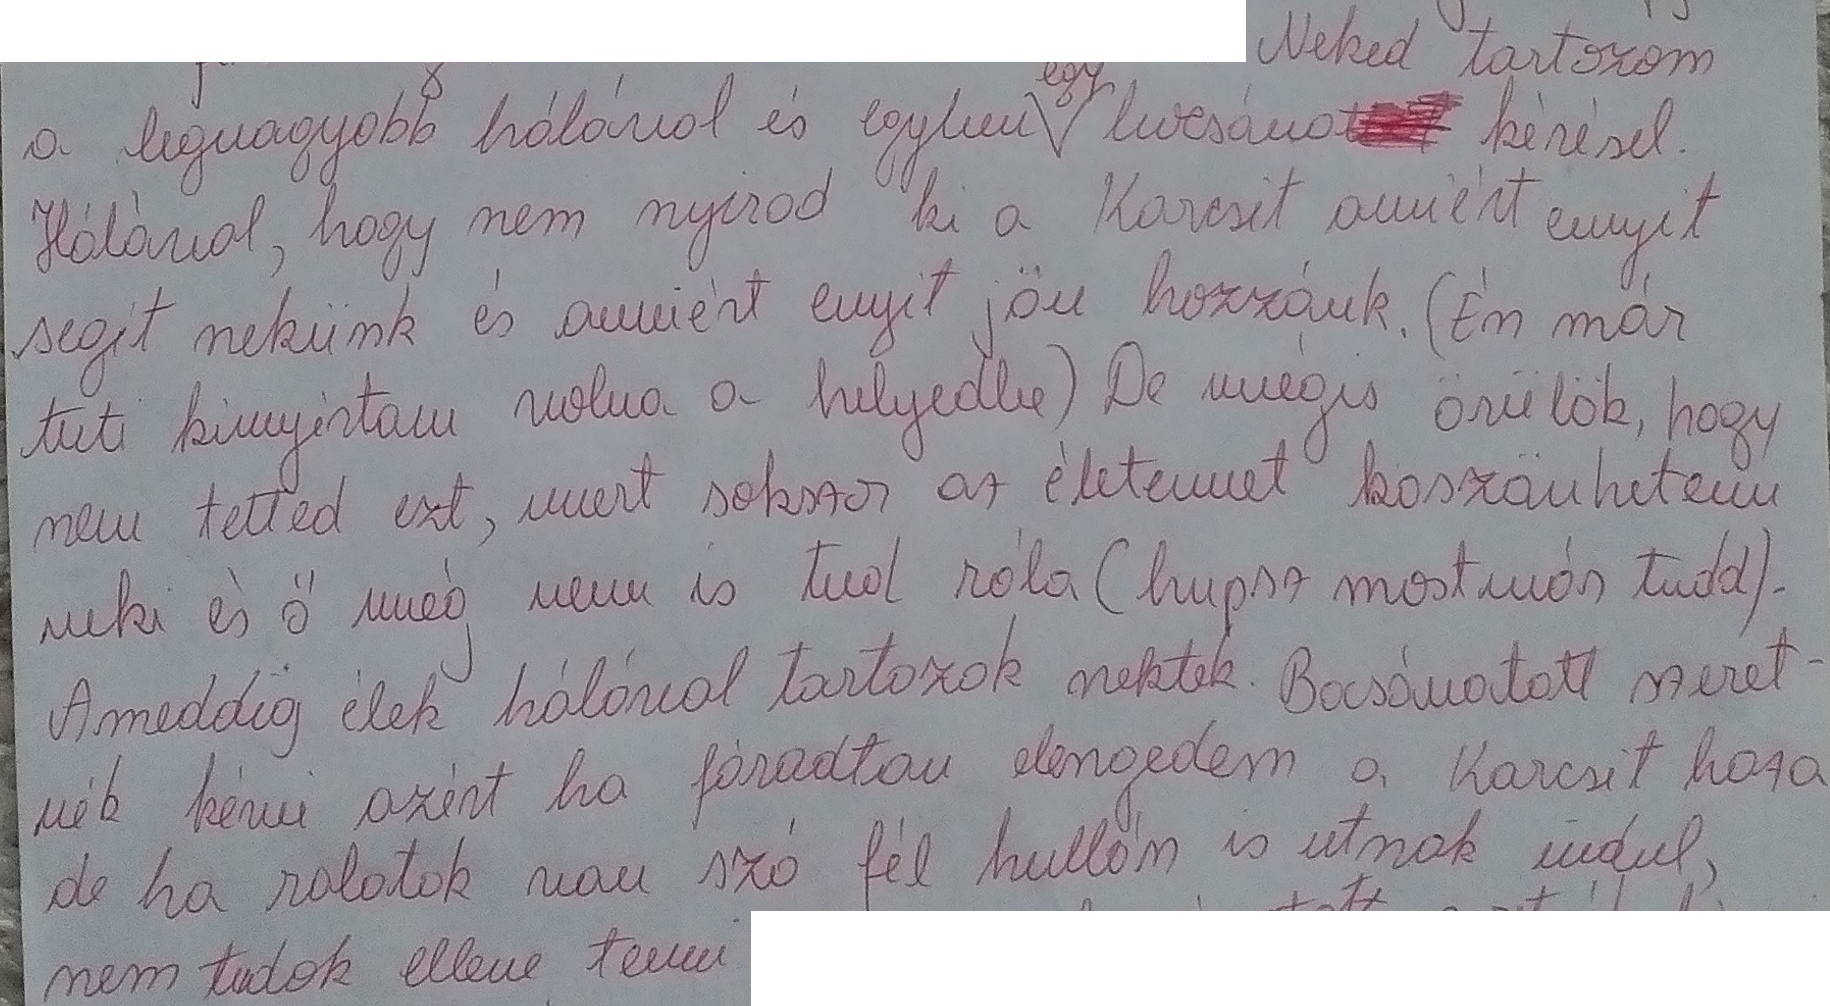 Neked tartozom
a legnagyobb hálával és egyben egy bocsánat kérésel.
Hálával, hogy nem nyirod ki a Karcsit amiért ennyit
segit nekünk és amiért ennyit jön hozzánk. (Én már
tuti kinyírtam volna a helyedbe) De mégis örülök, hogy
nem tetted ezt, mert sokszor az életemet köszönhetem
neki és ő még nem is tud róla (hupsz mostmár tudd).
Ameddig élek hálával tartozok nektek. Bocsánatott szeret-
nék kérni azért ha fáradtan elengedem a Karcsit haza
de ha rolatok van szó fél hullán is utnak indul,
nem tudok ellene tenni